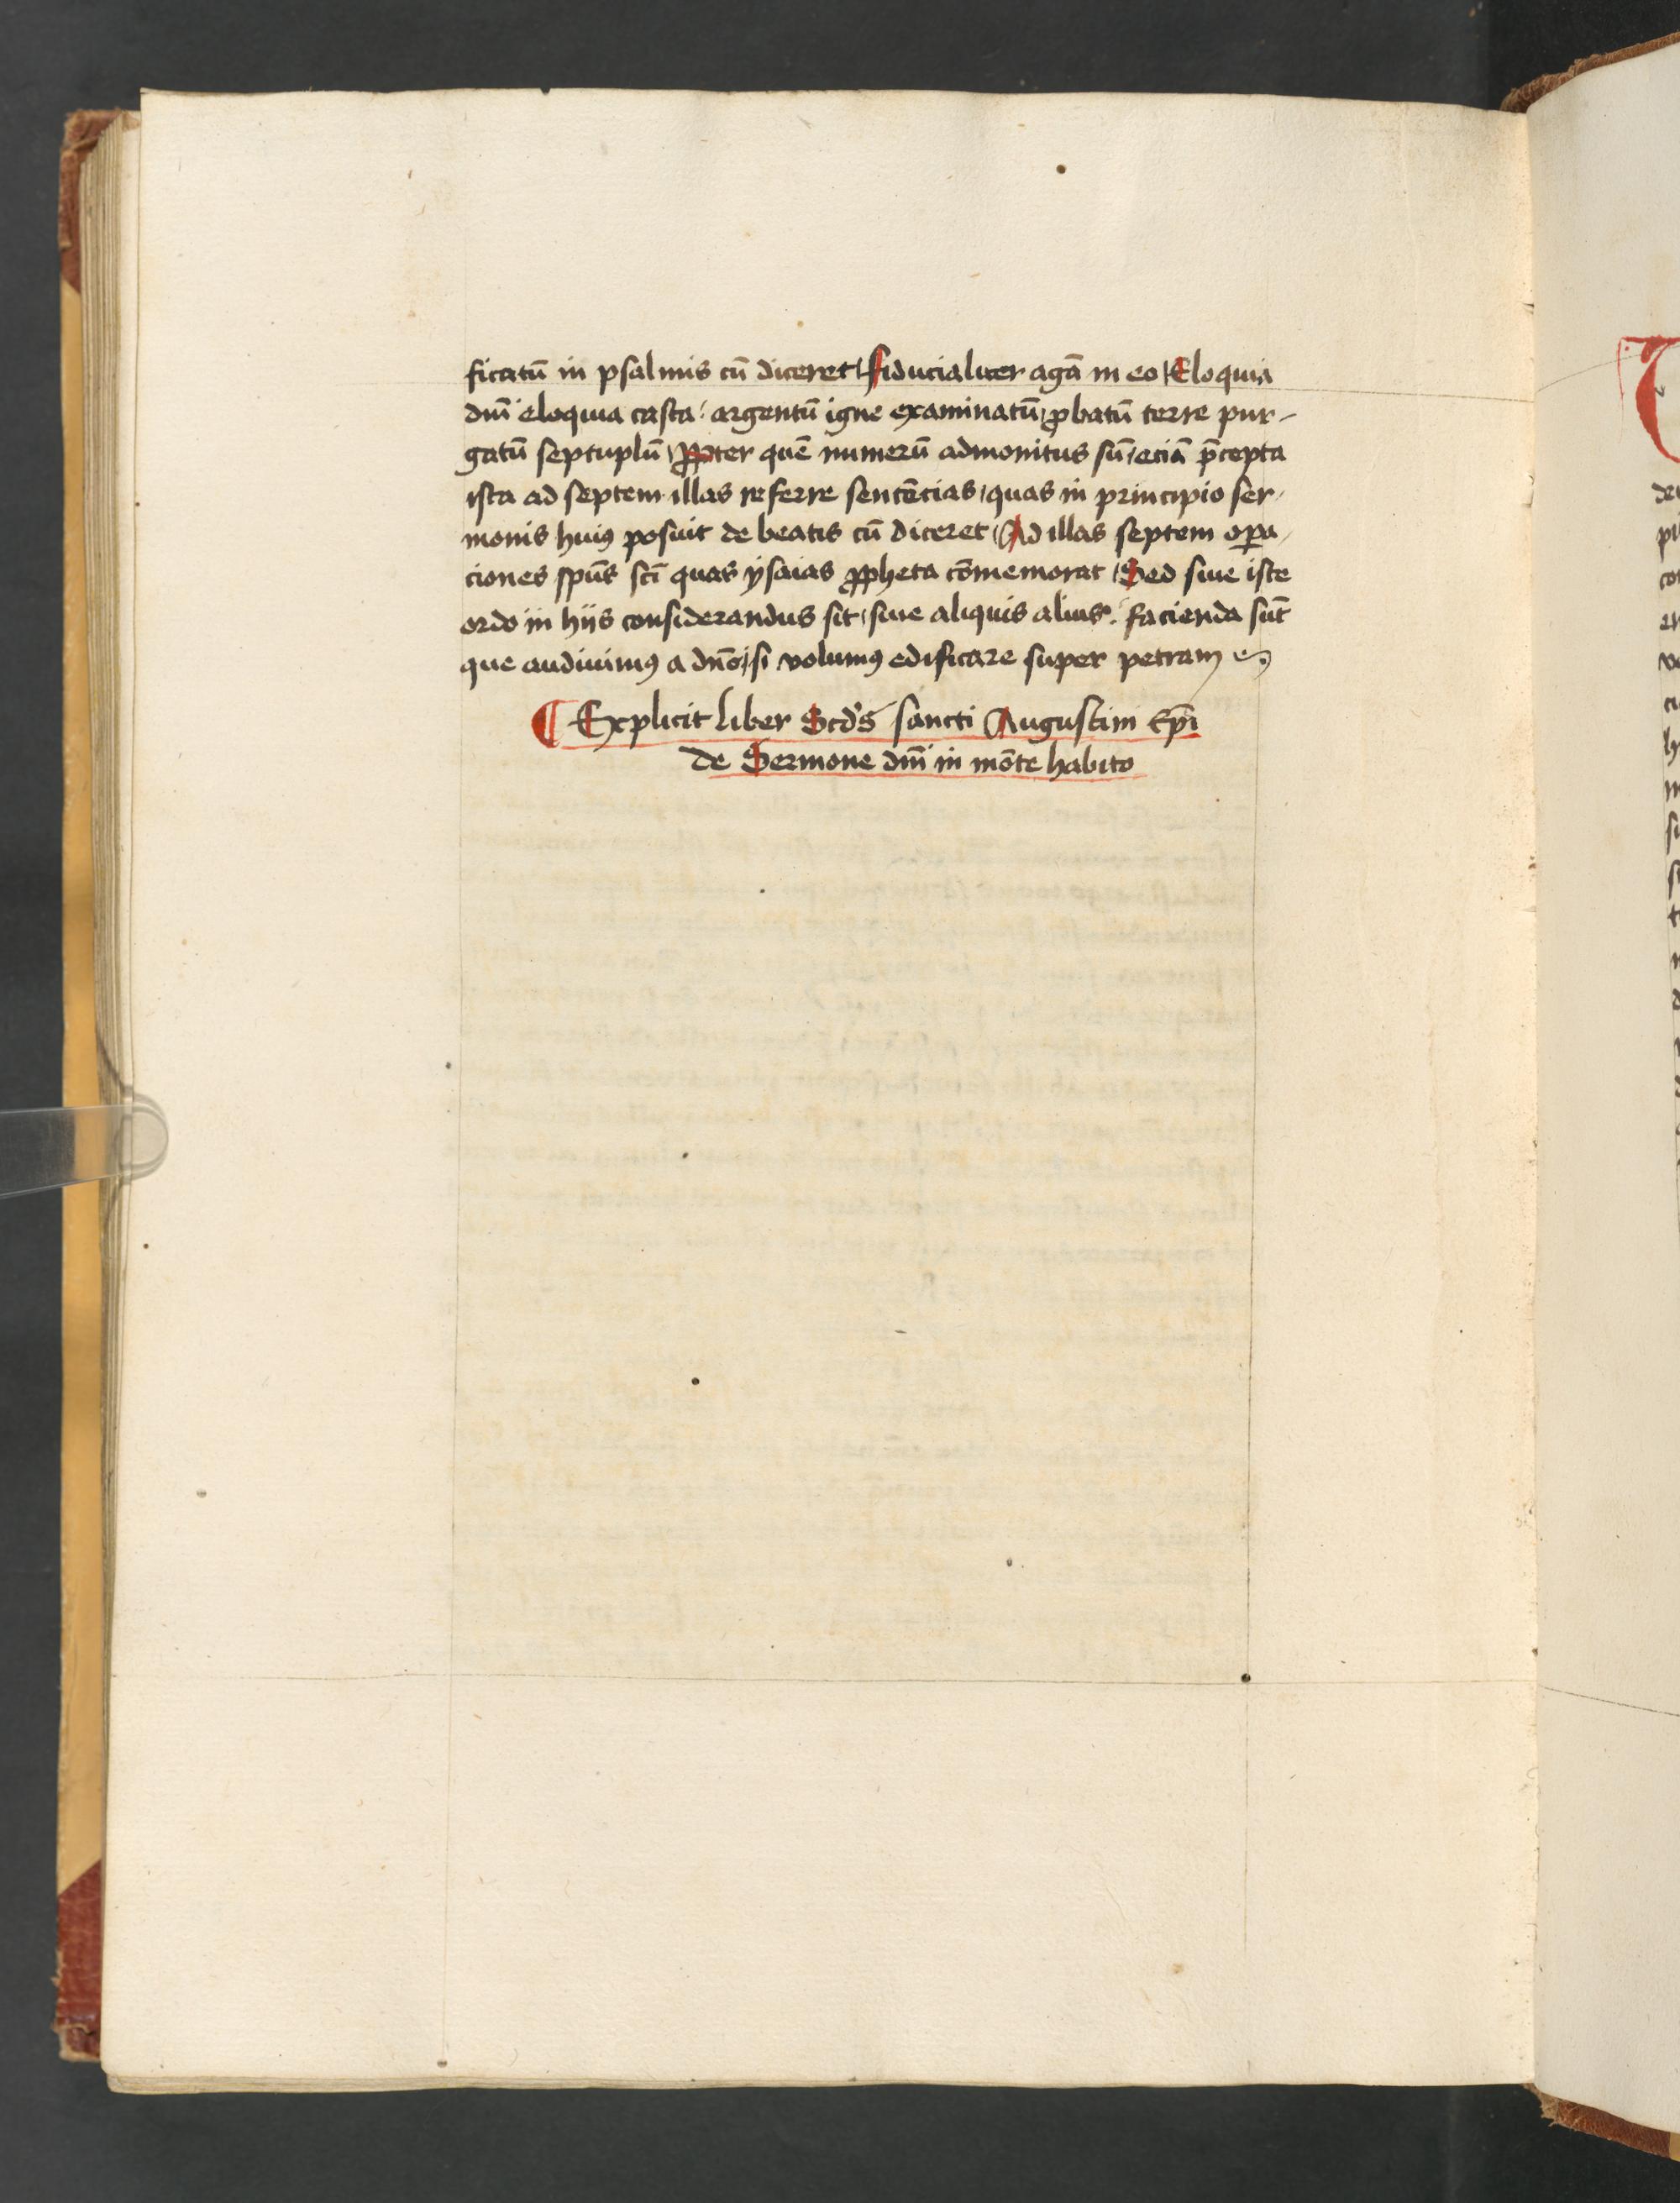 ficatū in psalmis cū diceret / Fiducialiter agā in eo / Eloquia
dnī eloquia casta / argentū igne examinatū / ꝓbatū terre pur-
gatū septuplū / Ꝓpter quē numerū admonitus sū / eciā p̄cepta
ista ad septem illas referre sentēcias / quas in principio ser-
monis huiꝰ posuit de beatis cū diceret / Ad illas septem oꝑa-
ciones spūs scī quas ysaias ꝓpheta cōmemorat / Sed siue iste
ordo in hijs considerandus sit / siue aliquis alius / facienda sūt
que audiuimꝰ a dnō / si volumꝰ edificare super petram
¶ Explicit liber Scdꝰs sancti Augustini Epī
de Sermone dnī in mōte habito